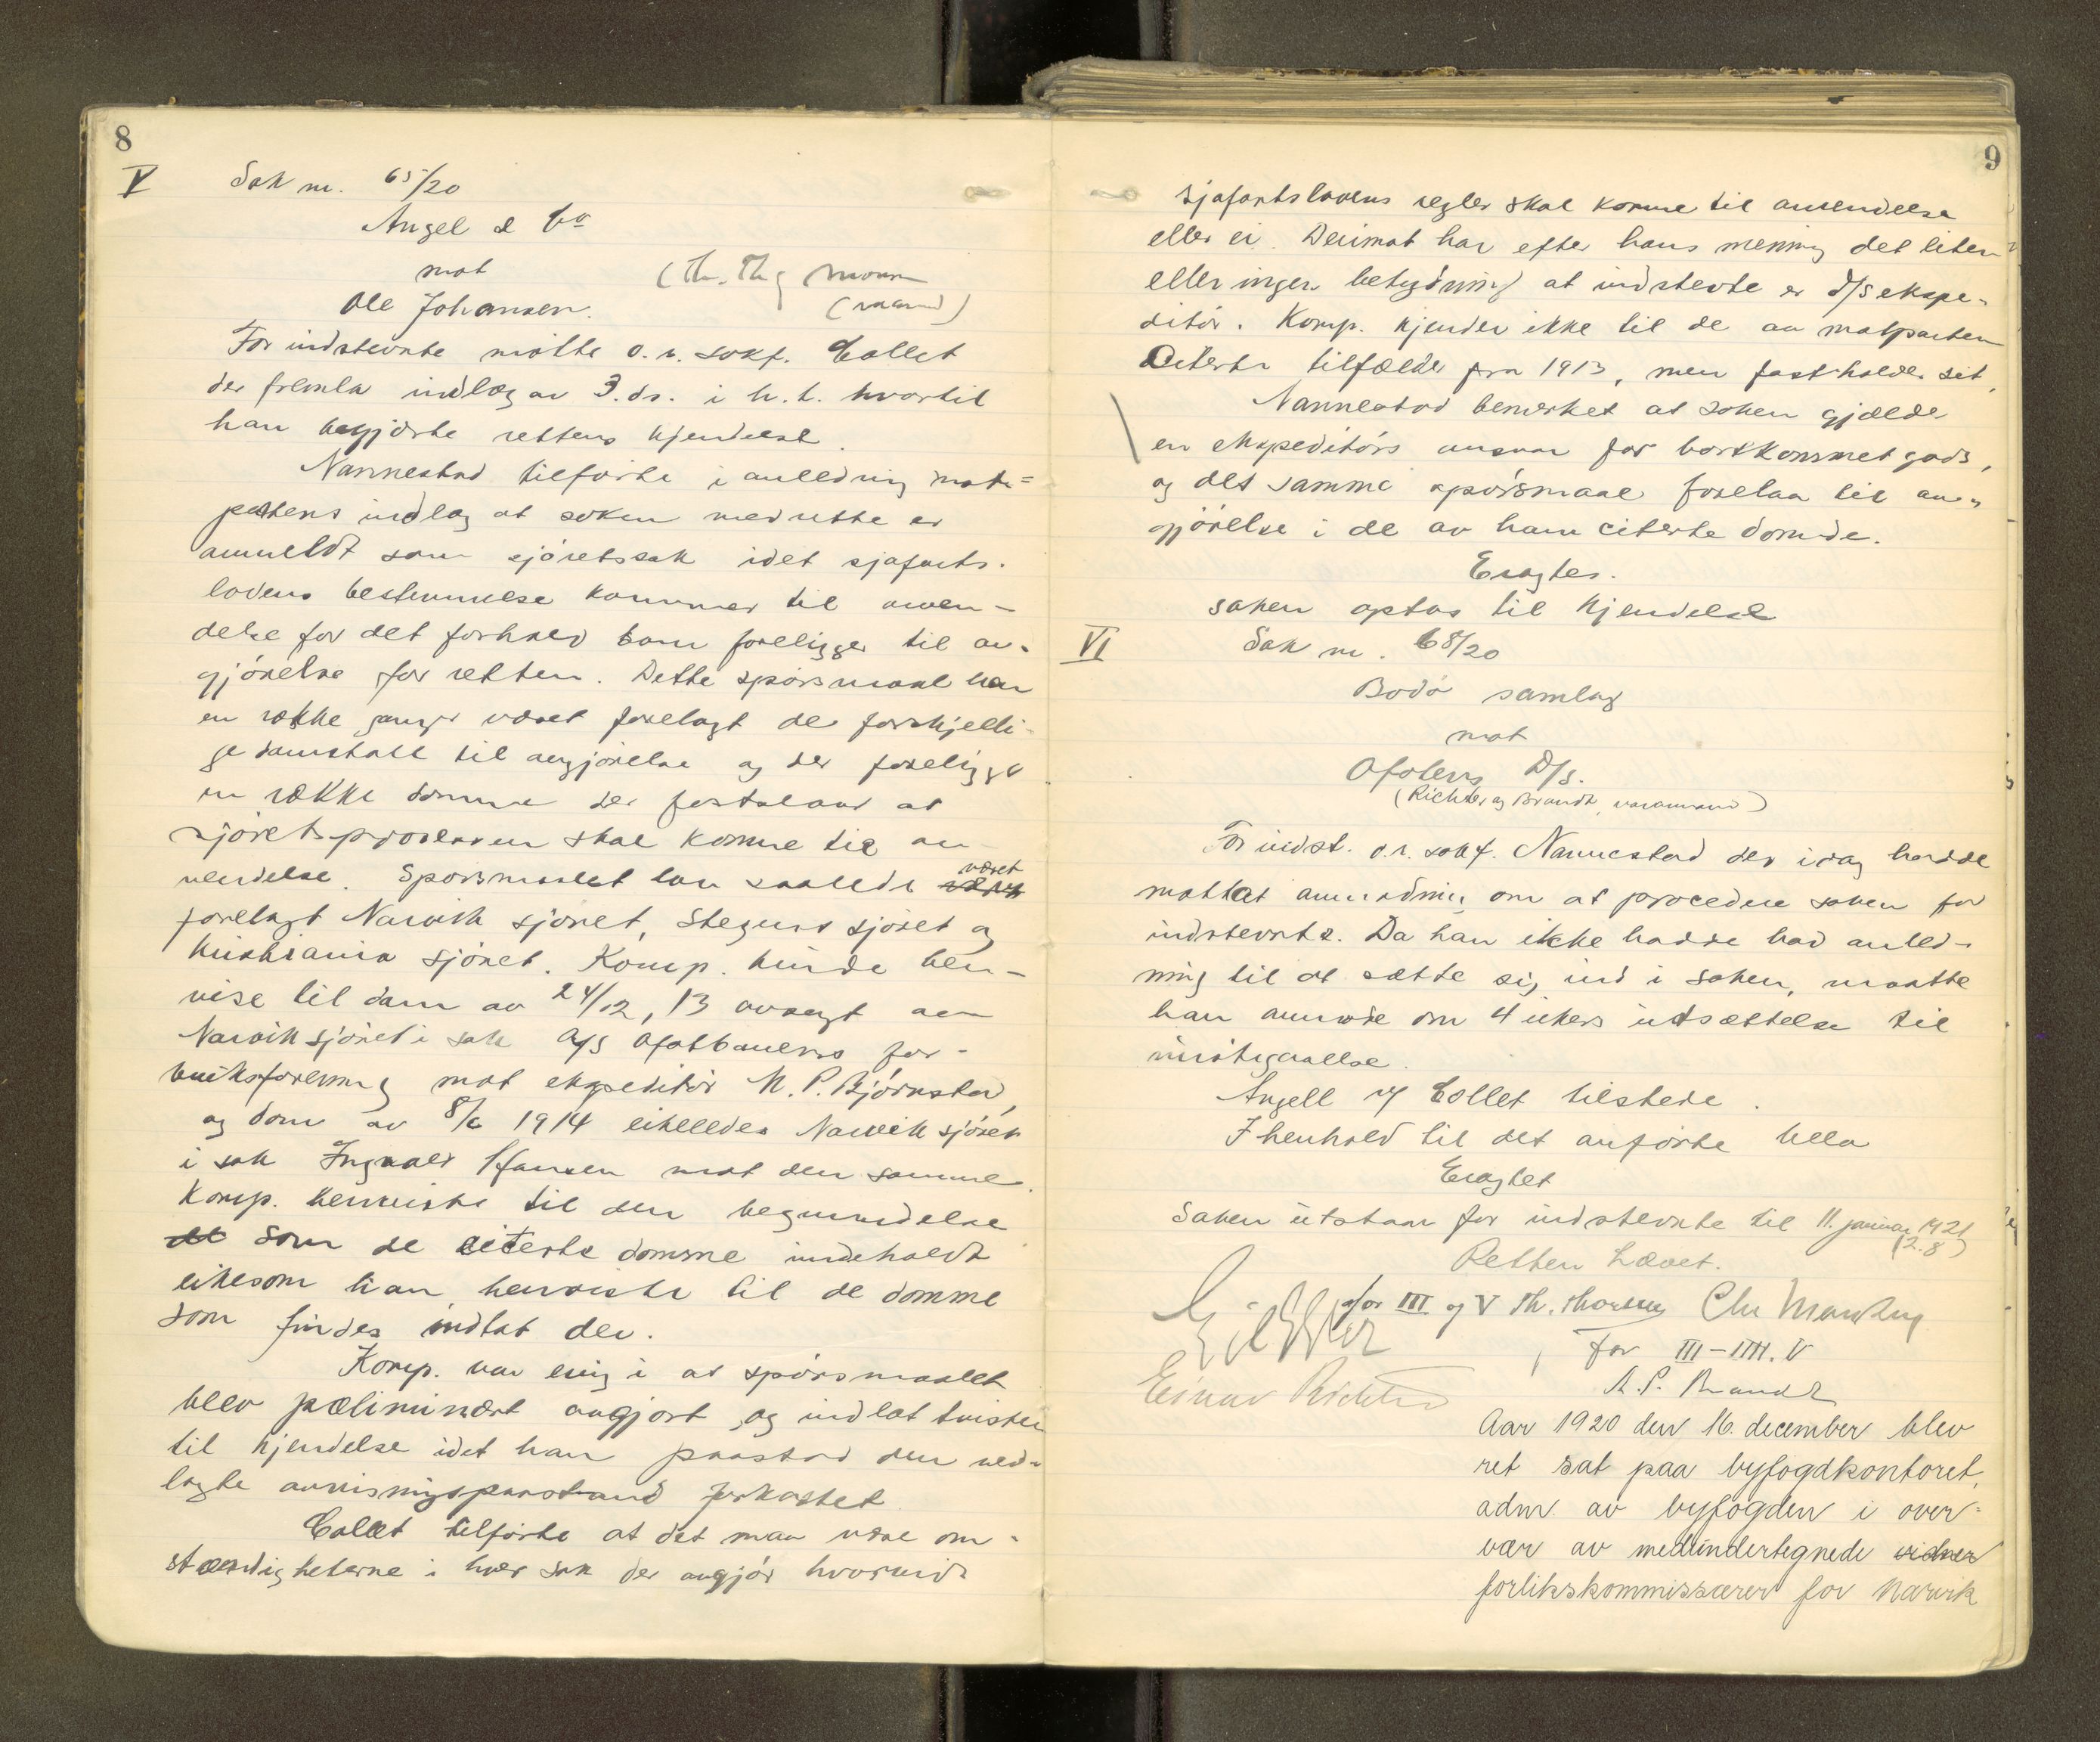 8
V Sak nr. 65/20
Angel & Co
mot
Ole Johansen.
For indstevnte møtte o.r. sakf. Collet
der fremla indlæg av 3. ds. i h.t. hvortil
han begjærte rettens kjendelse.
Nannestad tilførte i anledning mot-
partens indlæg at saken med rette er
anmeldt som sjøretssak idet sjøfarts-
lovens bestemmelse kommer til anven-
delse for det forhold som foreligger til av-
gjørelse for retten. Dette spørsmaal har
en række ganger været forelagt de forskjelli-
ge domstole til avgjørelse og der foreligger
en række domme der fastslaar at
sjøretsprosloven skal komme til an-
vendelse. Spørsmaalet har saaledes været
forelagt Narvik sjøret, Stegens sjøret og
Kristiania sjøret. Komp. kunde hen-
vise til dom av 24/12, 13 avsagt av
Narvik sjøret i sak A/S Ofotbanens for-
bruksforening mot ekspeditør N. P. Bjørnstad,
og dom av 8/6 1914 likeledes Narvik sjøret
i sak Ingvald Hansen mot den samme.
Komp. henviste til den begrundelse
som de citerte domme indeholdt
likesom han henviste til de domme
som findes indtat der.
Komp. var enig i at spørsmaalet
blev præliminært avgjort og indlot tvisten
til kjendelse idet han paastod den ned-
lagte avvisningspaastand forkastet.
Collet tilførte at det maa være om-
stændigheterne i hver sak der avgjør hvorvidt
9
sjøfartslovens regler skal komme til anvendelse
eller ei. Derimot har efter hans mening det liten
eller ingen betydning at indstevnte er d/s ekspe-
ditør. Komp. kjender ikke til de av motparten
citerte tilfælde fra 1913, men fastholder sit.
Nannestad bemerket at saken gjælder
en ekspeditørs ansvar for bortkommet gods,
og det samme spørsmaal forelaa til av-
gjørelse i de av ham citerte domme.
Eragtes.
saken optas til kjendelse
VI Sak nr. 68/20
Bodø samlag
mot
Ofotens D/S.
(Richter og Brandt, varamand)
For indst. o.r. sakf. Nannestad der idag hadde
mottat anmodning om at procedere saken for
indstevnte. Da han ikke hadde had anled-
ning til at sætte sig ind i saken, maatte
han anmode om 4 ukers utsættelse til
imøtegaaelse.
Angell v/ Collet tilstede.
I henhold til det anførte blev
Eragtet
Saken utstaar for indstevnte til 11. januar 1921
Retten hævet.
for III og V Th.
Einar Richter
For III-IIII. V
N. P. Brandt
Aar 1920 den 16. december blev
ret sat paa byfogdkontoret,
adm. av byfogden i over-
vær av medundertegnede vidner
forlikskommissærer for Narvik